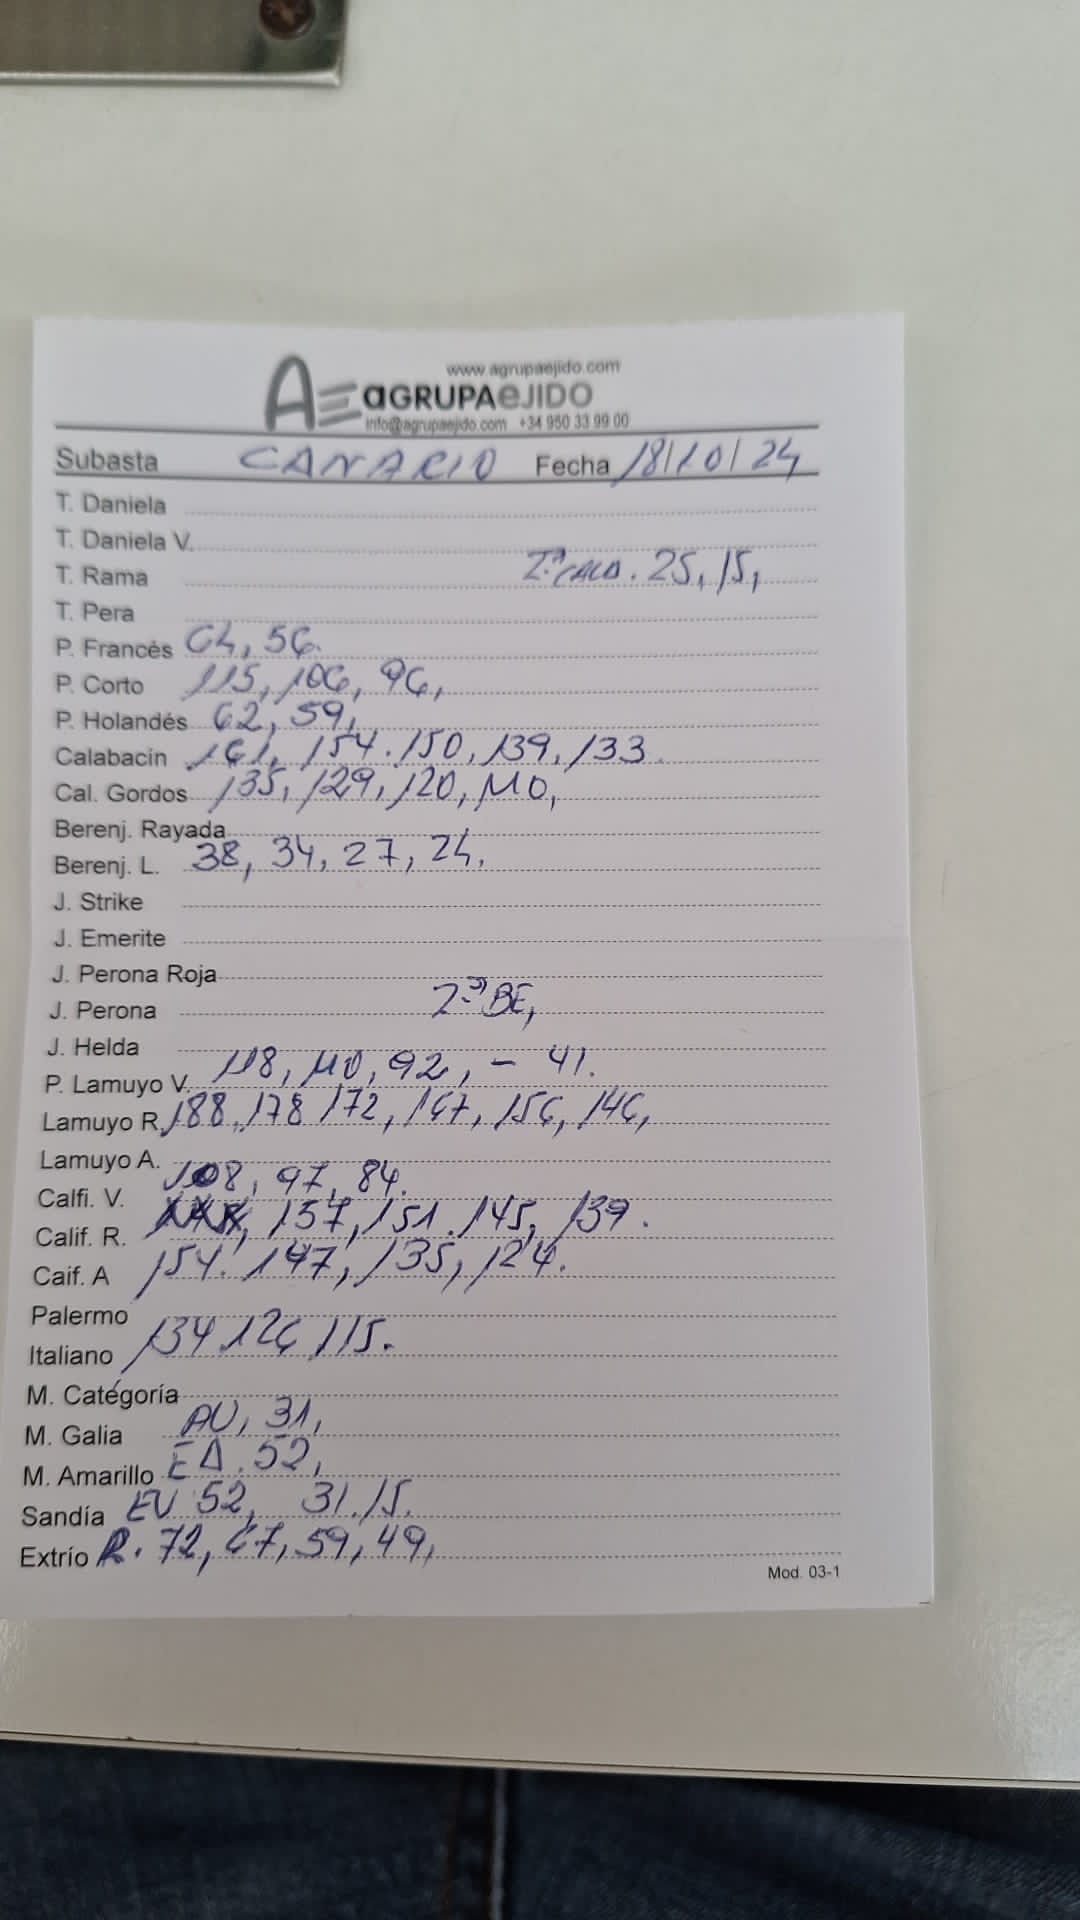 www.agrupaejido.com
AE aGRUPAeJIDO
info@agrupaejido.com +34 950 33 99 00
Subasta CANARIO Fecha 18/10/24
T. Daniela
T. Daniela V.
T. Rama 2.ª CALID. 25, 15,
T. Pera
P. Francés 64, 56.
P. Corto 115, 106, 96,
P. Holandés 62, 59,
Calabacin 161, 154. 150, 139, 133.
Cal. Gordos 135, 129, 120, 110,
Berenj. Rayada
Berenj. L. 38, 34, 27, 24.
J. Strike
J. Emerite
J. Perona Roja
J. Perona 2.ª BE,
J. Helda
P. Lamuyo V. 118, 110, 92, - 41.
Lamuyo R. 188, 178 172, 167, 156, 146,
Lamuyo A.
Calfi. V. 108, 97, 84.
Calif. R. 157, 151. 145, 139.
Caif. A 154. 147, 135, 124.
Palermo
Italiano 134 126 115.
M. Categoría
M. Galia AU, 31,
M. Amarillo EA. 52,
Sandía EU 52, 31. 15.
Extrío R. 72, 67, 59, 49,
Mod. 03-1